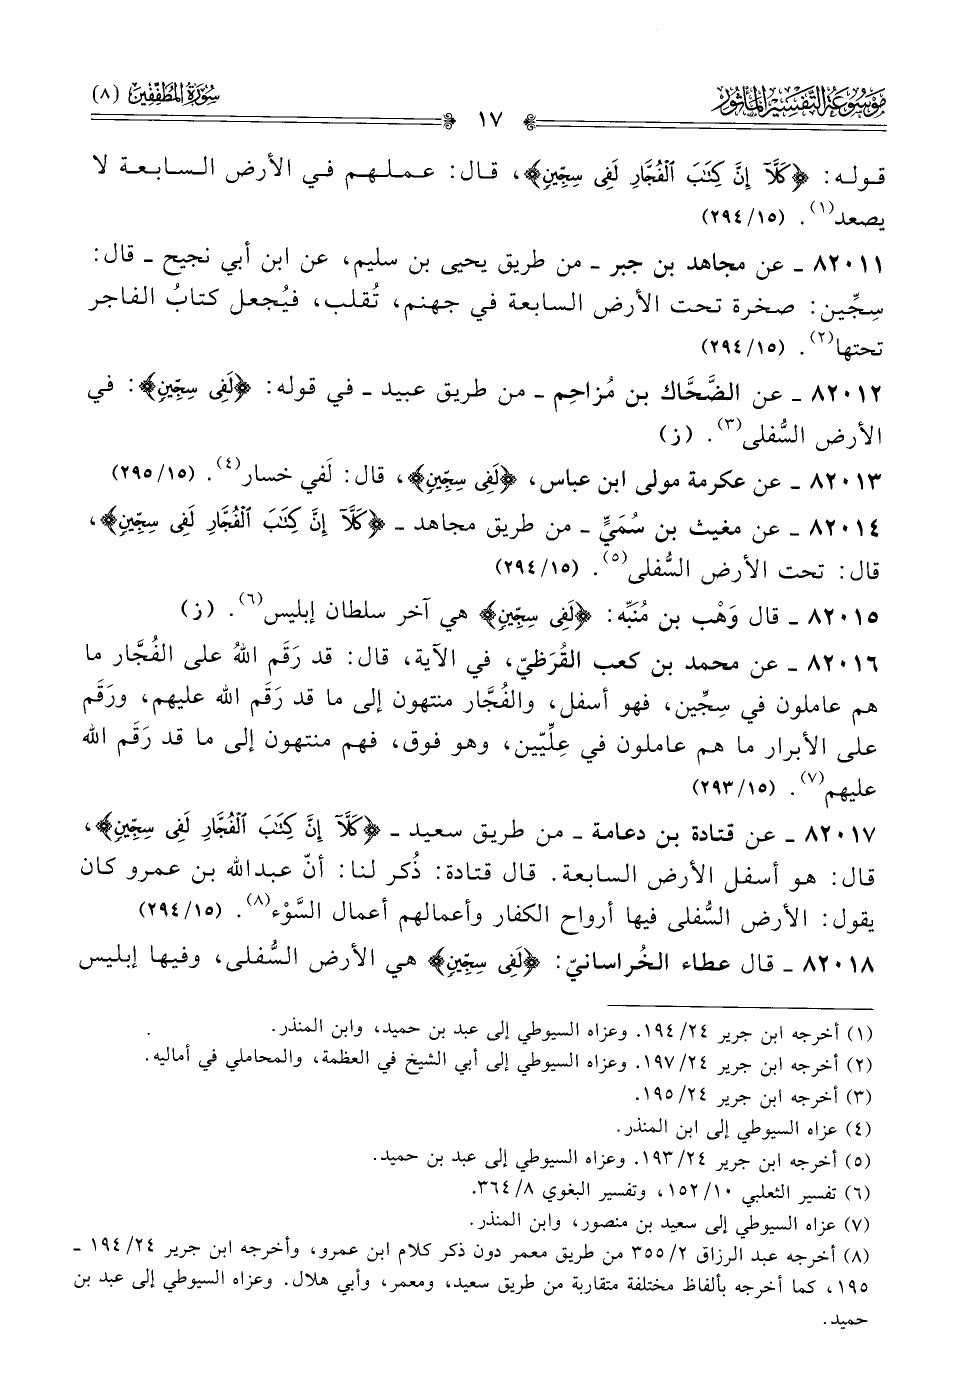 موسوعة التفسير المأثور
١٧
سورة المطففين (٨)
قوله: ﴿كَلَّآ إِنَّ كِتَٰبَ ٱلْفُجَّارِ لَفِى سِجِّينٍ﴾، قال: عملهم في الأرض السابعة لا
يصعد(١). (١٥/ ٢٩٤)
٨٢٠١١ ـ عن مجاهد بن جبر ـ من طريق يحيى بن سليم، عن ابن أبي نجيح ـ قال:
سِجِّين: صخرة تحت الأرض السابعة في جهنم، تُقلب، فيُجعل كتابُ الفاجر
تحتها(٢). (١٥/ ٢٩٤)
٨٢٠١٢ ـ عن الضَّحَّاك بن مُزاحِم ـ من طريق عبيد ـ في قوله: ﴿لَفِى سِجِّينٍ﴾: في
الأرض السُّفلى(٣). (ز)
٨٢٠١٣ ـ عن عكرمة مولى ابن عباس، ﴿لَفِى سِجِّينٍ﴾، قال: لَفي خسار(٤). (١٥/ ٢٩٥)
٨٢٠١٤ ـ عن مغيث بن سُمَيٍّ ـ من طريق مجاهد ـ ﴿كَلَّآ إِنَّ كِتَٰبَ ٱلْفُجَّارِ لَفِى سِجِّينٍ﴾،
قال: تحت الأرض السُّفلى(٥). (١٥/ ٢٩٤)
٨٢٠١٥ ـ قال وَهْب بن مُنَبِّه: ﴿لَفِى سِجِّينٍ﴾ هي آخر سلطان إبليس(٦). (ز)
٨٢٠١٦ ـ عن محمد بن كعب القُرَظيّ، في الآية، قال: قد رَقَم اللهُ على الفُجَّار ما
هم عاملون في سِجِّين، فهو أسفل، والفُجَّار منتهون إلى ما قد رَقَم الله عليهم، ورَقَم
على الأبرار ما هم عاملون في عِلِّيّين، وهو فوق، فهم منتهون إلى ما قد رَقَم الله
عليهم(٧). (١٥/ ٢٩٣)
٨٢٠١٧ ـ عن قتادة بن دعامة ـ من طريق سعيد ـ ﴿كَلَّآ إِنَّ كِتَٰبَ ٱلْفُجَّارِ لَفِى سِجِّينٍ﴾،
قال: هو أسفل الأرض السابعة. قال قتادة: ذُكر لنا: أنّ عبدالله بن عمرو كان
يقول: الأرض السُّفلى فيها أرواح الكفار وأعمالهم أعمال السَّوْء(٨). (١٥/ ٢٩٤)
٨٢٠١٨ ـ قال عطاء الخُراسانيّ: ﴿لَفِى سِجِّينٍ﴾ هي الأرض السُّفلى، وفيها إبليس
(١) أخرجه ابن جرير ٢٤/ ١٩٤. وعزاه السيوطي إلى عبد بن حميد، وابن المنذر.
(٢) أخرجه ابن جرير ٢٤/ ١٩٧. وعزاه السيوطي إلى أبي الشيخ في العظمة، والمحاملي في أماليه.
(٣) أخرجه ابن جرير ٢٤/ ١٩٥.
(٤) عزاه السيوطي إلى ابن المنذر.
(٥) أخرجه ابن جرير ٢٤/ ١٩٣. وعزاه السيوطي إلى عبد بن حميد.
(٦) تفسير الثعلبي ١٠/ ١٥٢، وتفسير البغوي ٨/ ٣٦٤.
(٧) عزاه السيوطي إلى سعيد بن منصور، وابن المنذر.
(٨) أخرجه عبد الرزاق ٢/ ٣٥٥ من طريق معمر دون ذكر كلام ابن عمرو، وأخرجه ابن جرير ٢٤/ ١٩٤ ـ
١٩٥، كما أخرجه بألفاظ مختلفة متقاربة من طريق سعيد، ومعمر، وأبي هلال. وعزاه السيوطي إلى عبد بن
حميد.